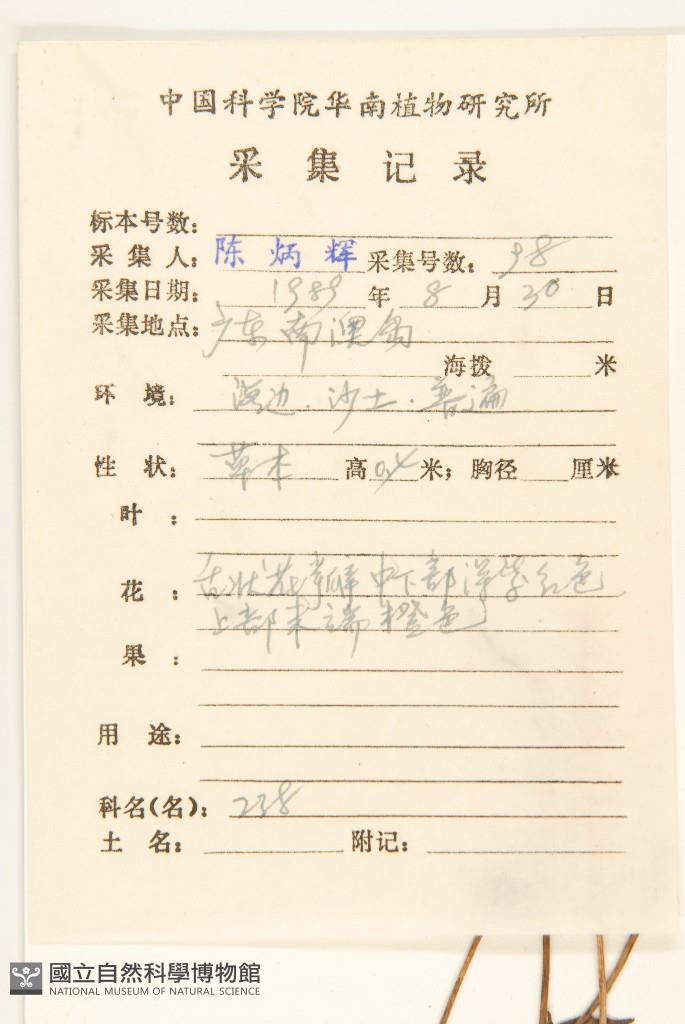 中国科学院华南植物研究所
采集记录
标本号数:
采集人: 陈炳辉 采集号数: 98
采集日期: 1989 年 8 月 30 日
采集地点: 广东南澳岛
海拨 米
环境: 海边.沙土.普遍
性状: 草本 高 0.4 米; 胸径 厘米
叶:
花: 舌状花瓣中下部深紫红色
上部末端橙色
果:
用途:
科名(名): 238
土名: 附记:
國立自然科學博物館
NATIONAL MUSEUM OF NATURAL SCIENCE